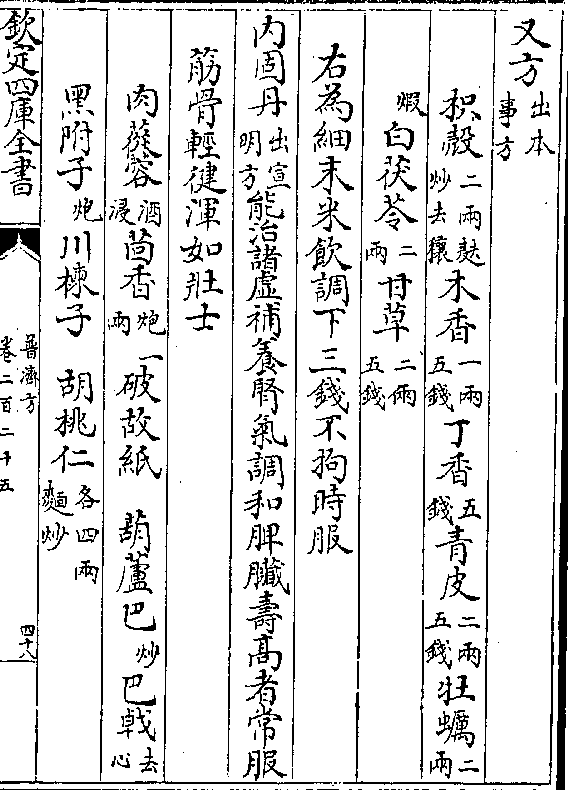 又方出本事方
枳殻二兩麩炒去穰木香一兩五錢丁香五錢青皮二兩五錢牡蠣二兩
煅白茯苓二兩甘草二兩五錢
右為細末米飲調下三錢不拘時服
内固丹出宣明方能治諸虛補養腎氣調和脾臟壽髙者常服
筋骨輕健渾如壯士
肉蓯蓉酒浸茴香炮一兩破故紙 葫蘆巴炒巴戟去心
黑附子炮川楝子 胡桃仁各四兩麵炒
欽定四庫全書 普濟方 卷二百二十五 四十八